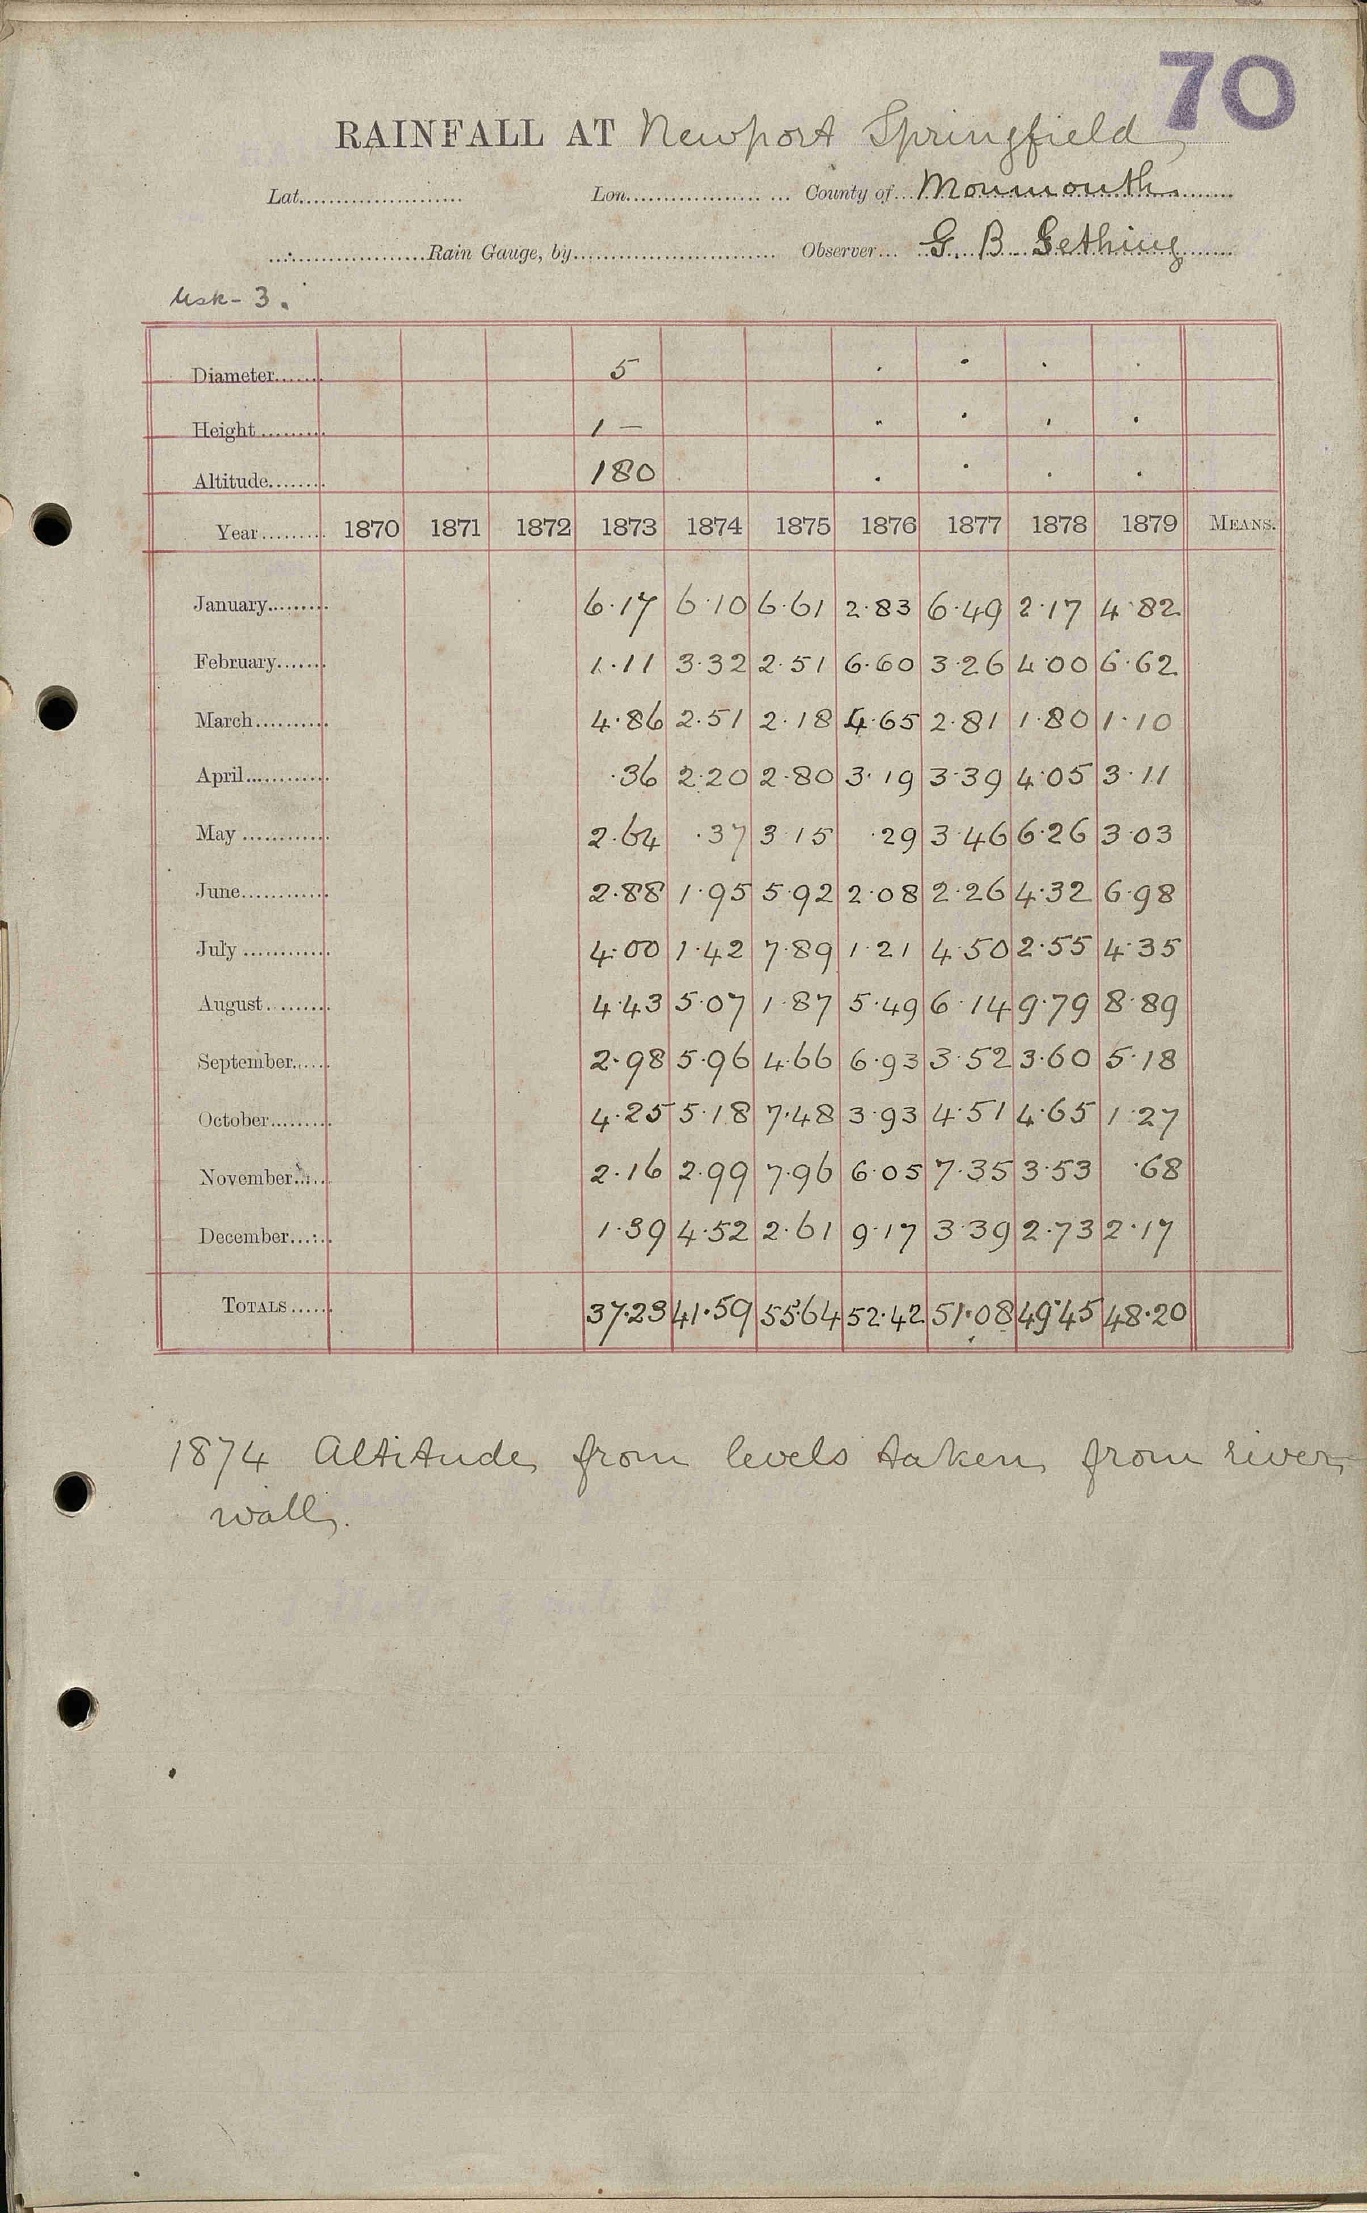 70
RAINFALL AT Newport Springfield
Lat.......... Lon.......... County of Monmouth
Rain Gauge, by.......... Observer G. B. Gething
Usk-3.
Diameter 5 . . . .
Height 1 — . . . .
Altitude 180 . . . .
Year 1870 1871 1872 1873 1874 1875 1876 1877 1878 1879 MEANS.
January 6.17 6.10 6.61 2.83 6.49 2.17 4.82
February 1.11 3.32 2.51 6.60 3.26 4.00 6.62
March 4.86 2.51 2.18 4.65 2.81 1.80 1.10
April .36 2.20 2.80 3.19 3.39 4.05 3.11
May 2.64 .37 3.15 .29 3.46 6.26 3.03
June 2.88 1.95 5.92 2.08 2.26 4.32 6.98
July 4.00 1.42 7.89 1.21 4.50 2.55 4.35
August 4.43 5.07 1.87 5.49 6.14 9.79 8.89
September 2.98 5.96 4.66 6.93 3.52 3.60 5.18
October 4.25 5.18 7.48 3.93 4.51 4.65 1.27
November 2.16 2.99 7.96 6.05 7.35 3.53 .68
December 1.39 4.52 2.61 9.17 3.39 2.73 2.17
TOTALS 37.23 41.59 55.64 52.42 51.08 49.45 48.20
1874 Altitude from levels taken from river
wall.